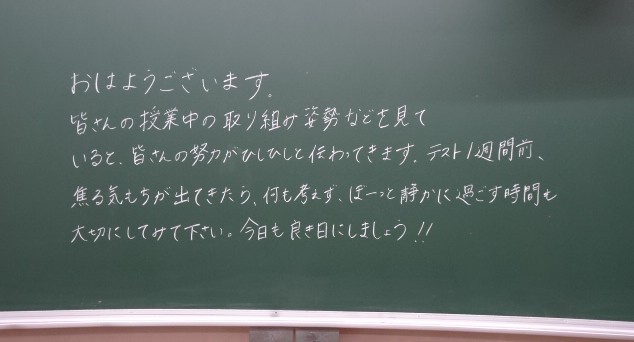 おはようございます。
皆さんの授業中の取り組み姿勢などを見て
いると、皆さんの努力がひしひしと伝わってきます。テスト1週間前、
焦る気もちが出てきたら、何も考えず、ぼーっと静かに過ごす時間も
大切にしてみて下さい。今日も良き日にしましょう!!